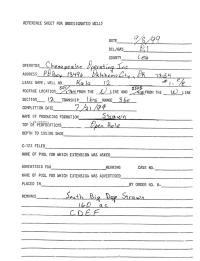 REFERENCE SHEET FOR UNDESIGNATED WELLS
DATE 9/8/99
OIL/GAS Oil
COUNTY Lea
OPERATOR Chesapeake Operating Inc
ADDRESS PO Box 18496 Oklahoma City, OK
LEASE NAME, WELL NO. Kala 12 # 1
FOOTAGE LOCATION FROM THE N LINE AND FROM THE W LINE
SECTION 12 TOWNSHIP 16s RANGE 36e
COMPLETION DATE 7/21/99
NAME OF PRODUCING FORMATION Strawn
TOP OF PERFORATIONS Open Hole
DEPTH TO CASING SHOE
C-123 FILED
NAME OF POOL FOR WHICH EXTENSION WAS ASKED
ADVERTISED FOR HEARING CASE NO.
NAME OF POOL FOR WHICH EXTENSION WAS ADVERTISED
PLACED IN BY ORDER NO. R-
REMARKS South Big Dog Strawn
160 ac
CDEF